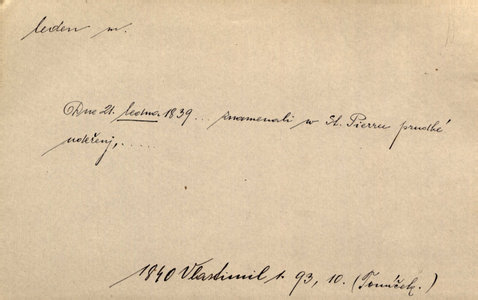 leden m.
Dne 21. ledna 1839 ... znamenali w St. Pierru prudké
udeření, .....
1840 Vlastimil 1. 93, 10. (Tomíček.)